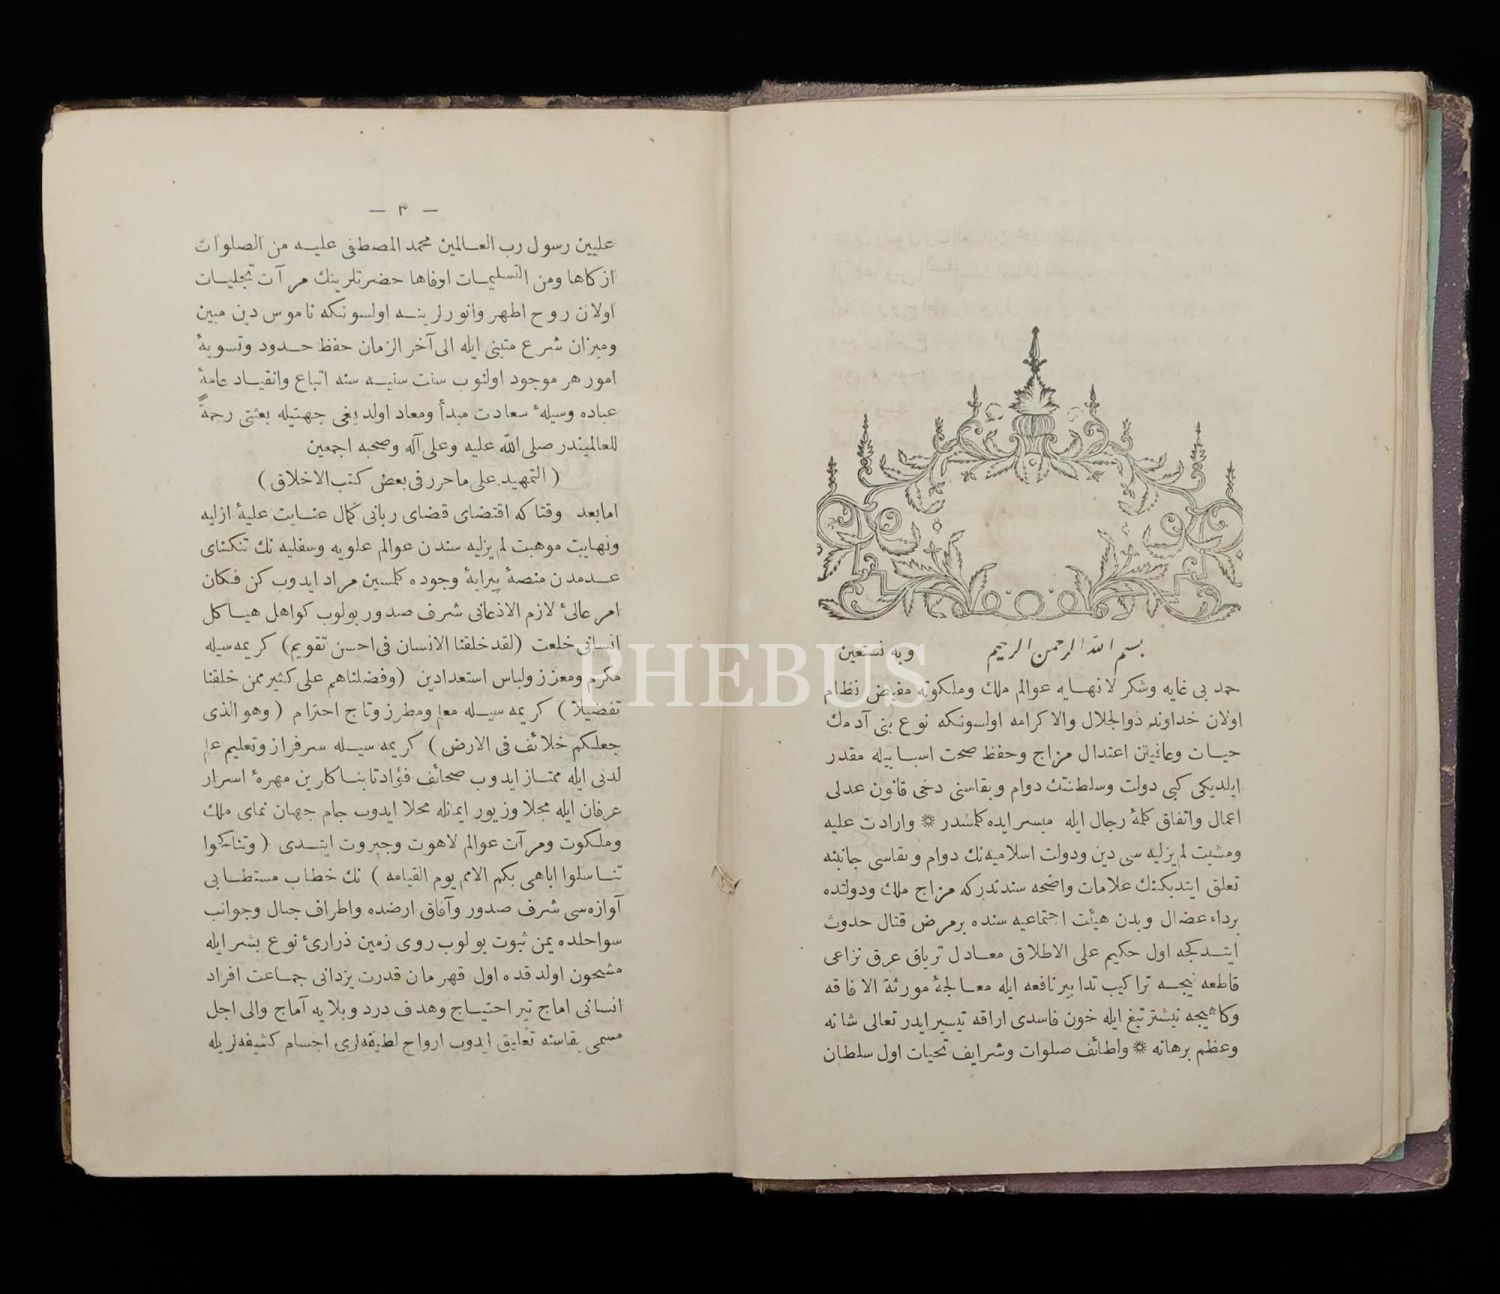 بسم الله الرحمن الرحيم وبه نستعين
حمد بی غایه وشکر لا نهایه عوالم ملك وملکوته مفیض نظام
اولان خداوند ذوالجلال والاکرامه اولسونکه نوع بنی آدمك
حیات وعافیتن اعتدال مزاج وحفظ صحت اسبابیله مقدر
ایلدیکی کبی دولت وسلطنتك دوام وبقاسنی دخی قانون عدلی
اعمال واتفاق کلمۀ رجال ایله میسر ایده کلمشدر * وارادت علیه
ومشیت لم یزلیه سی دین ودولت اسلامیه نك دوام وبقاسی جانبنه
تعلق ایتدیکنك علامات واضحه سندندرکه مزاج ملك ودولتده
برداء عضال وبدن هیئت اجتماعیه سنده برمرض قتال حدوث
ایتدکجه اول حکیم علی الاطلاق معادل تریاق عرق نزاعی
قاطعه نیجه تراکیب تدابیر نافعه ایله معالجۀ مورثة الافاقه
نیشتر تیغ ایله خون فاسدی اراقه تیسیر ایدر تعالی شانه
وعظم برهانه * ولطائف صلوات وشرایف تحیات اول سلطان
— ٣ —
علیین رسول رب العالمین محمد المصطفی علیه من الصلوات
ازکاها ومن التسلیمات اوفاها حضرتلرینك مرآت تجلیات
اولان روح اطهر وانورلرینه اولسونکه ناموس دین مبین
ومیزان شرع متینی ایله الی آخر الزمان حفظ حدود وتسویۀ
امور هر موجود اولنوب سنت سنیه سنه اتباع وانقیاد عامۀ
عباده وسیلۀ سعادت مبدأ ومعاد اولدیغی جهتیله بعثتی رحمةً
للعالمیندر صلی الله علیه وعلی آله وصحبه اجمعین
( التمهید علی ماحرر فی بعض کتب الاخلاق )
امابعد وقتاکه اقتضای قضای ربانی کمال عنایت علیۀ ازلیه
ونهایت موهبت لم یزلیه سندن عوالم علویه وسفلیه نك تنکنای
عدمدن منصۀ پیرایۀ وجوده کلمسین مراد ایدوب کن فکان
امر عالیٔ لازم الاذعانی شرف صدور بولوب کواهل هیاکل
انسانی خلعت (لقد خلقنا الانسان فی احسن تقویم) کریمه سیله
مکرم ومعزز ولباس استعدادین (وفضلناهم علی کثیر ممن خلقنا
تفضیلا) کریمه سیله معلم ومطرز وتاج احترام ( وهو الذی
جعلکم خلائف فی الارض ) کریمه سیله سرفراز وتعلیم علم
لدنی ایله ممتاز ایدوب صحائف فؤادتابناکارین مهرۀ اسرار
عرفان ایله مجلا وزیور ایله محلا ایدوب جام جهان نمای ملك
وملکوت ومرآت عوالم لاهوت وجبروت ایتدی ( وتناکحوا
تناسلوا اباهی بکم الامم یوم القیامه ) نك خطاب مستطابی
آوازه سی شرف صدور وآفاق ارضده واطراف جبال وجوانب
سواحلده یمن ثبوت بولوب روی زمین ذراریٔ نوع بشر ایله
مشحون اولدقده اول قهرمان قدرت یزدانی جماعت افراد
انسانی اماج تیر احتیاج وهدف درد وبلایه آماج والی اجل
مسمی بقاسنه تعلیق ایدوب ارواح لطیفه لری اجسام کثیفه لریله
PHEBUS